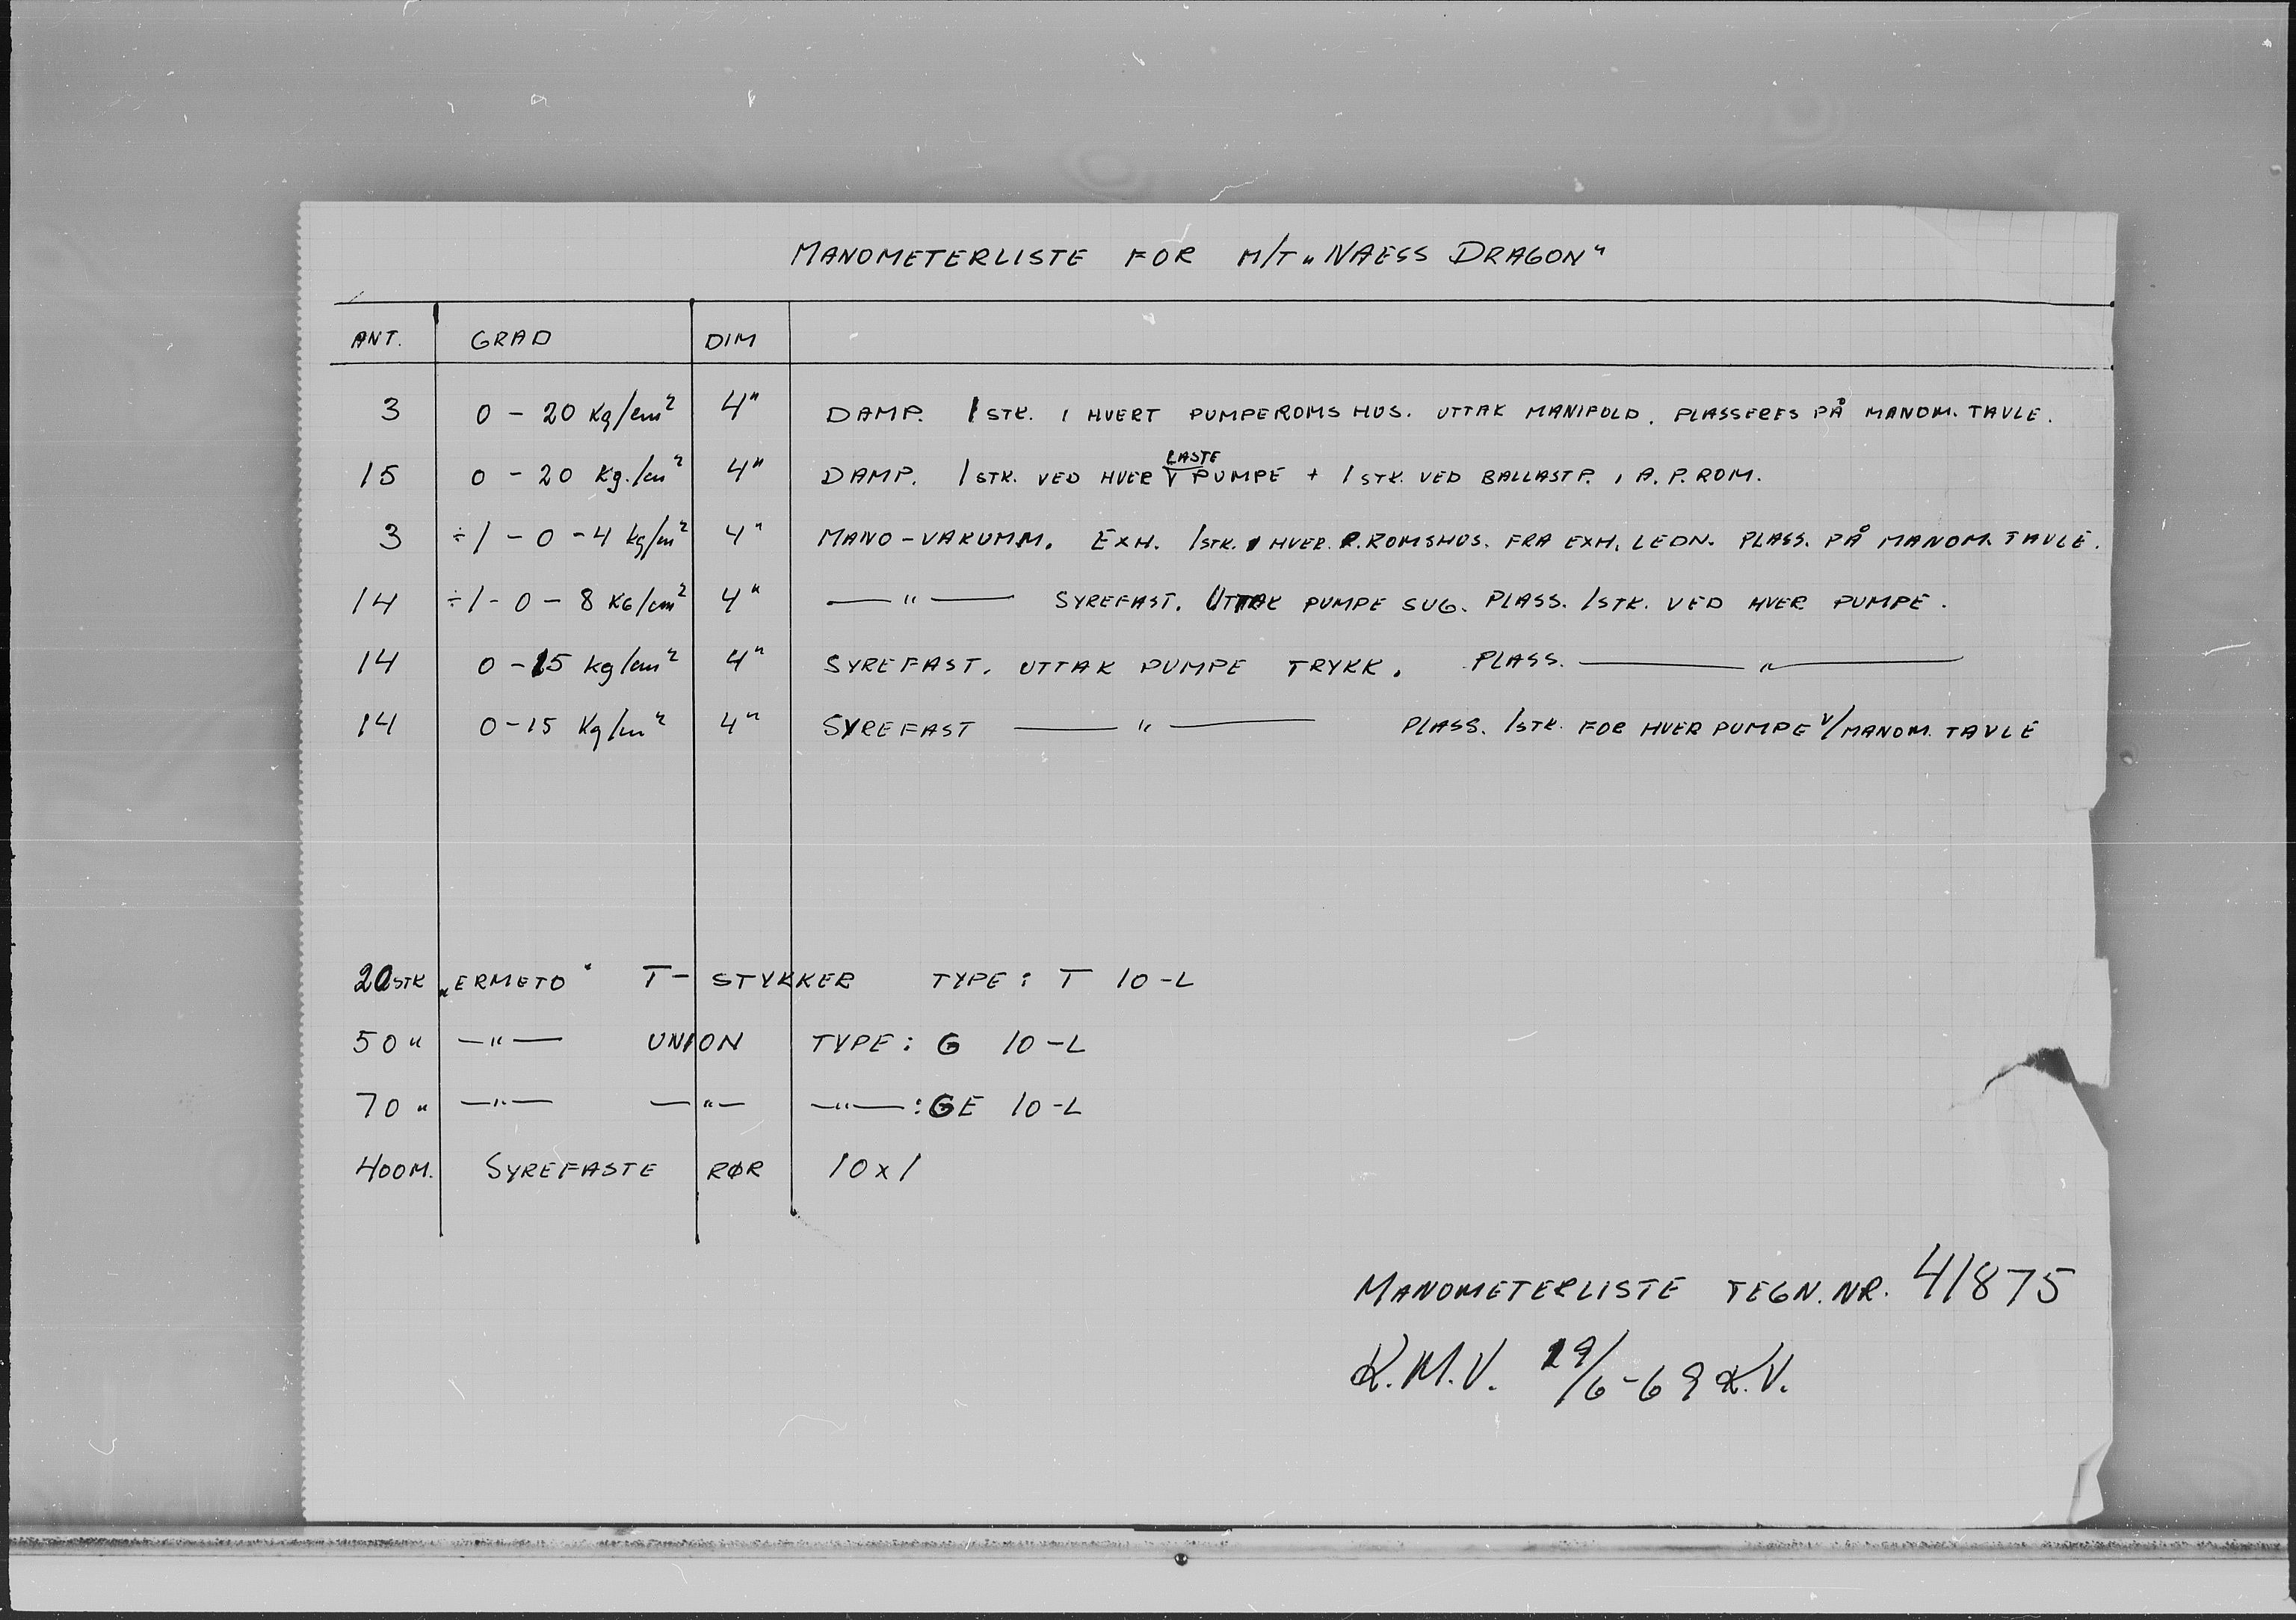 MANOMETERLISTE FOR M/T „NAESS DRAGON"
ANT. GRAD DIM
3 0 - 20 Kg/cm² 4" DAMP. 1 STK. I HVERT PUMPEROMSHUS. UTTAK MANIFOLD. PLASSERES PÅ MANOM. TAVLE.
LASTE
15 0 - 20 Kg./cm² 4" DAMP. 1 STK. VED HVER V PUMPE + 1 STK. VED BALLASTP. I A. P. ROM.
3 ÷1 - 0 - 4 kg/cm² 4" MANO-VAKUMM. EXH. 1 STK. I HVER. P.ROMSHUS. FRA EXH. LEDN. PLASS. PÅ MANOM. TAVLE.
14 ÷1 - 0 - 8 KG/cm² 4" —— " —— SYREFAST. UTTAK PUMPE SUG. PLASS. 1 STK. VED HVER PUMPE.
14 0 - 15 kg/cm² 4" SYREFAST. UTTAK PUMPE TRYKK. PLASS. —— " ——
14 0 - 15 Kg/cm² 4" SYREFAST —— " —— PLASS. 1 STK. FOR HVER PUMPE V/MANOM. TAVLE
20 STK „ERMETO" T- STYKKER TYPE: T 10-L
50 " — " — UNION TYPE: G 10-L
70 " — " — — " — — " — : GE 10-L
400M. SYREFASTE RØR 10 x 1
MANOMETERLISTE TEGN. NR. 41875
K.M.V. 19/6-69 K.V.